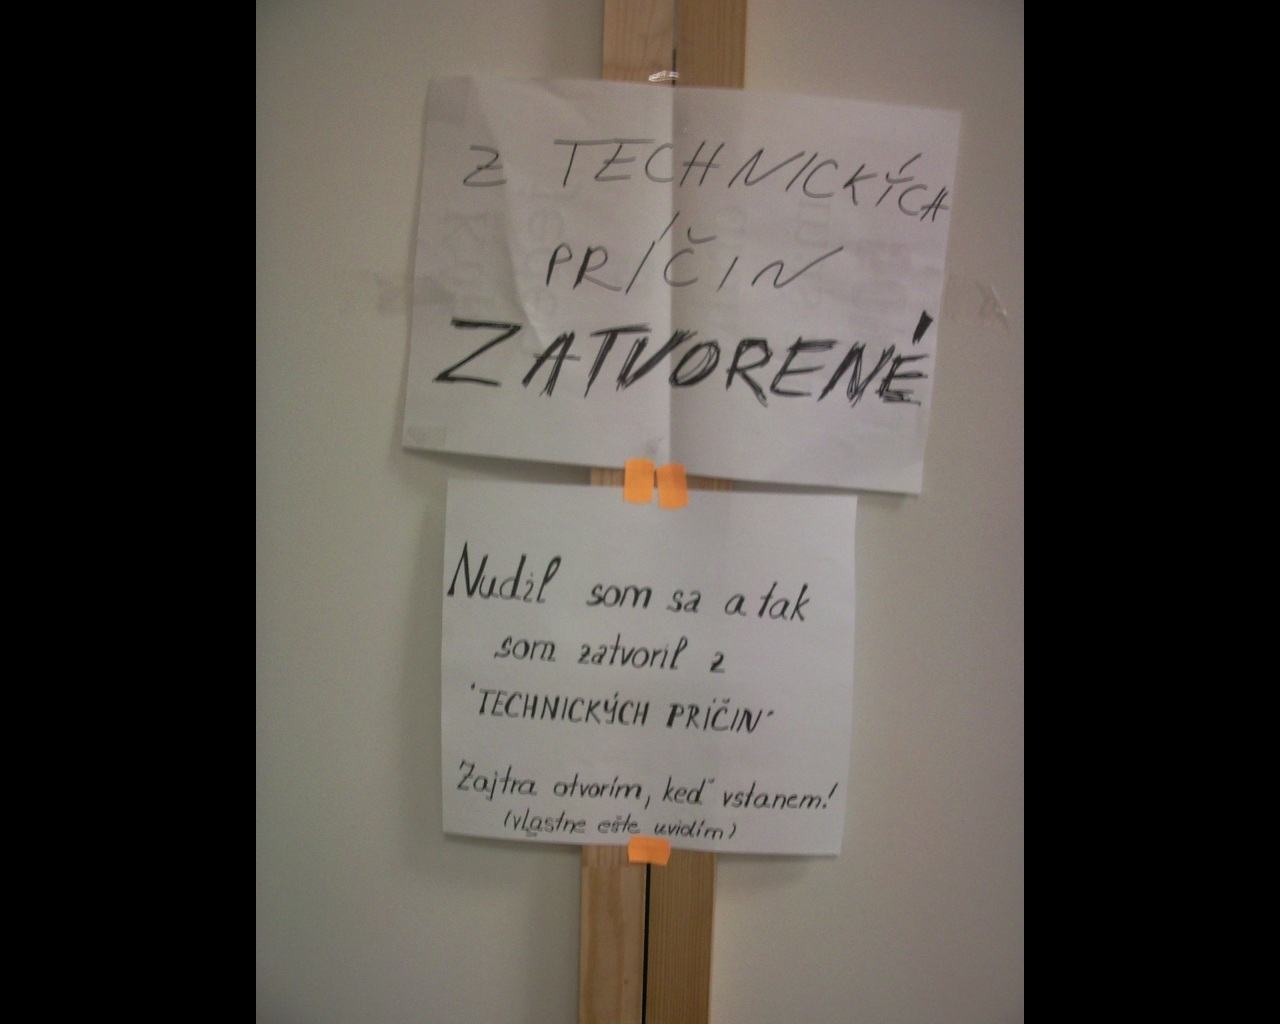 Z TECHNICKÝCH
PRÍČIN
ZATVORENÉ
Nudil som sa a tak
som zatvoril z
'TECHNICKÝCH PRÍČIN'
Zajtra otvorím, keď vstanem!
(vlastne ešte uvidím)